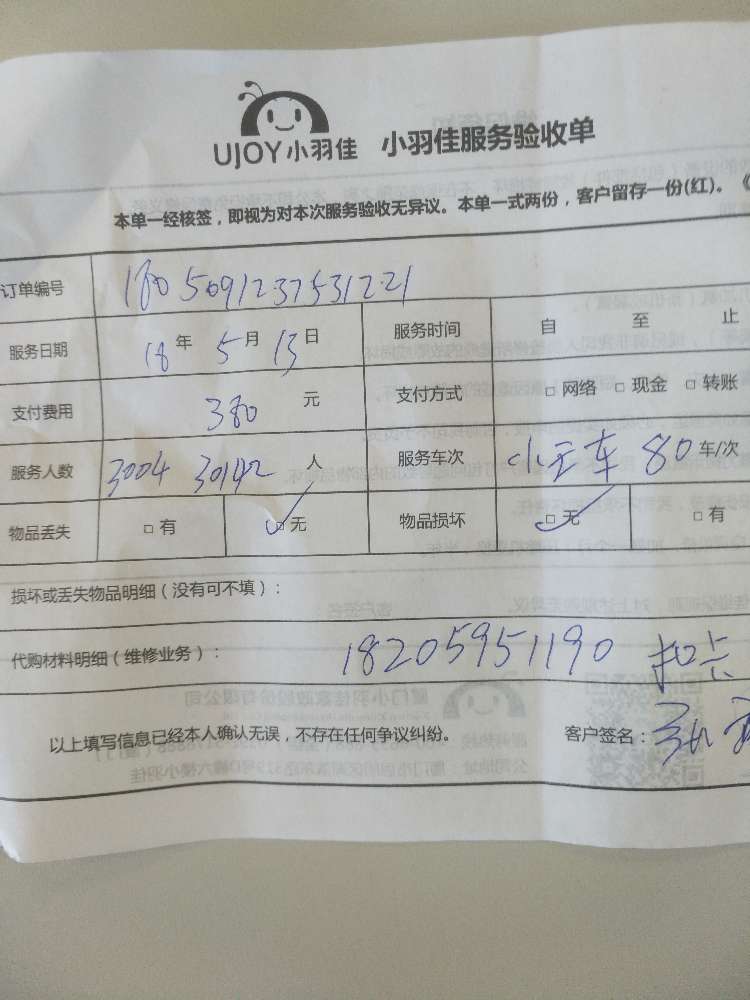 UJOY小羽佳 小羽佳服务验收单
本单一经核签，即视为对本次服务验收无异议。本单一式两份，客户留存一份(红)。
订单编号 1805091237531221
服务日期 18年 5月 13日 服务时间 自 至 止
支付费用 380 元 支付方式 □ 网络 □ 现金 □ 转账
服务人数 3004 30142 人 服务车次 80 车/次
物品丢失 □ 有 □ 无 物品损坏 □ 无 □ 有
损坏或丢失物品明细（没有可不填）：
代购材料明细（维修业务）： 18205951190 扣卡
以上填写信息已经本人确认无误，不存在任何争议纠纷。 客户签名：